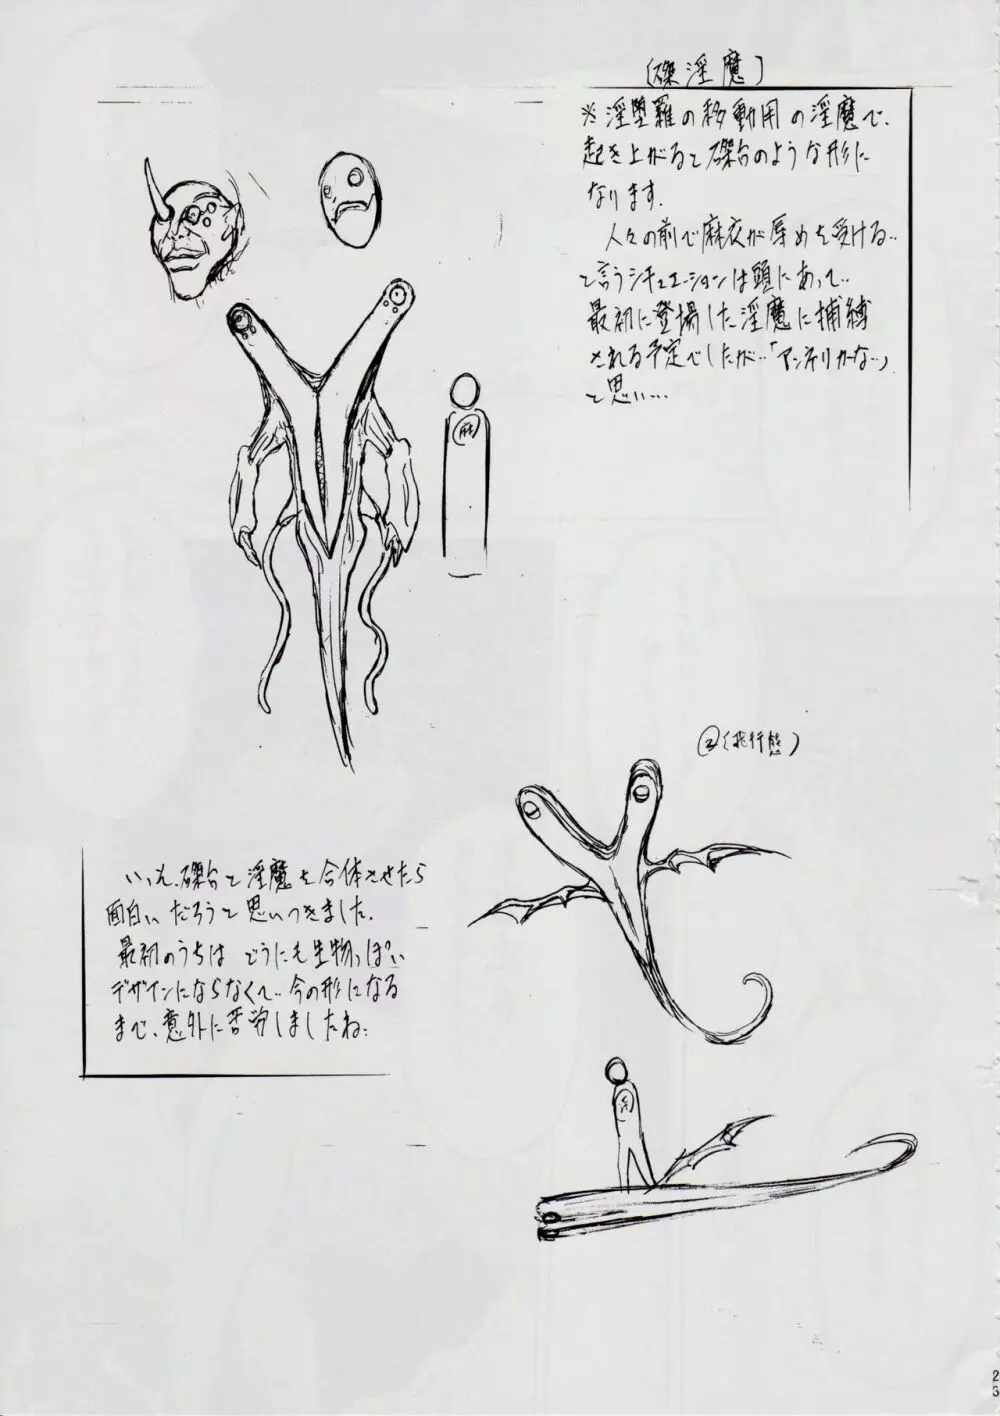 (磔淫魔)
※淫堕羅の移動用の淫魔で、
起き上がると磔台のような形に
なります。
人々の前で麻衣が辱めを受ける‥
と言うシチュエーションは頭にあって‥
最初に登場した淫魔に捕縛
される予定でしたが‥「アンマリかな‥」
と思い…
麻
②(飛行態)
いっそ、磔台と淫魔を合体させたら
面白いだろうと思いつきました。
最初のうちは どうにも生物っぽい
デザインにならなくて‥今の形になる
まで、意外に苦労しましたね‥
23